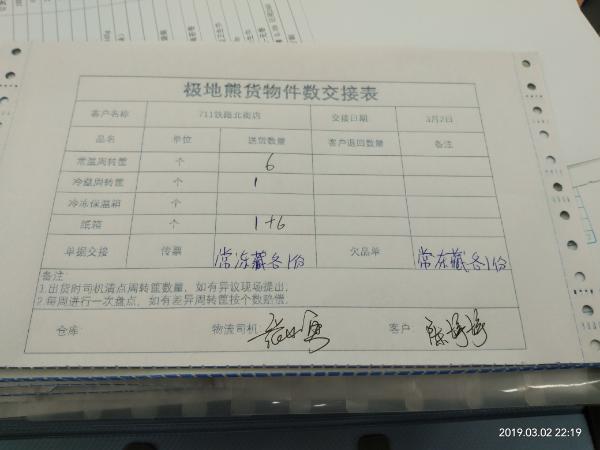 极地熊货物件数交接表
客户名称 711铁路北街店 交接日期 3月2日
品名 单位 送货数量 客户退回数量 备注
常温周转筐 个 6
冷藏周转筐 个 1
冷冻保温箱 个
纸箱 个 1+6
单据交接 传票 常冻藏各1份 欠品单 常冻藏各1份
备注
1.出货时司机清点周转筐数量，如有异议现场提出.
2.每周进行一次盘点，如有差异周转筐按个数赔偿.
仓库: 物流司机: 客户
2019.03.02 22:19